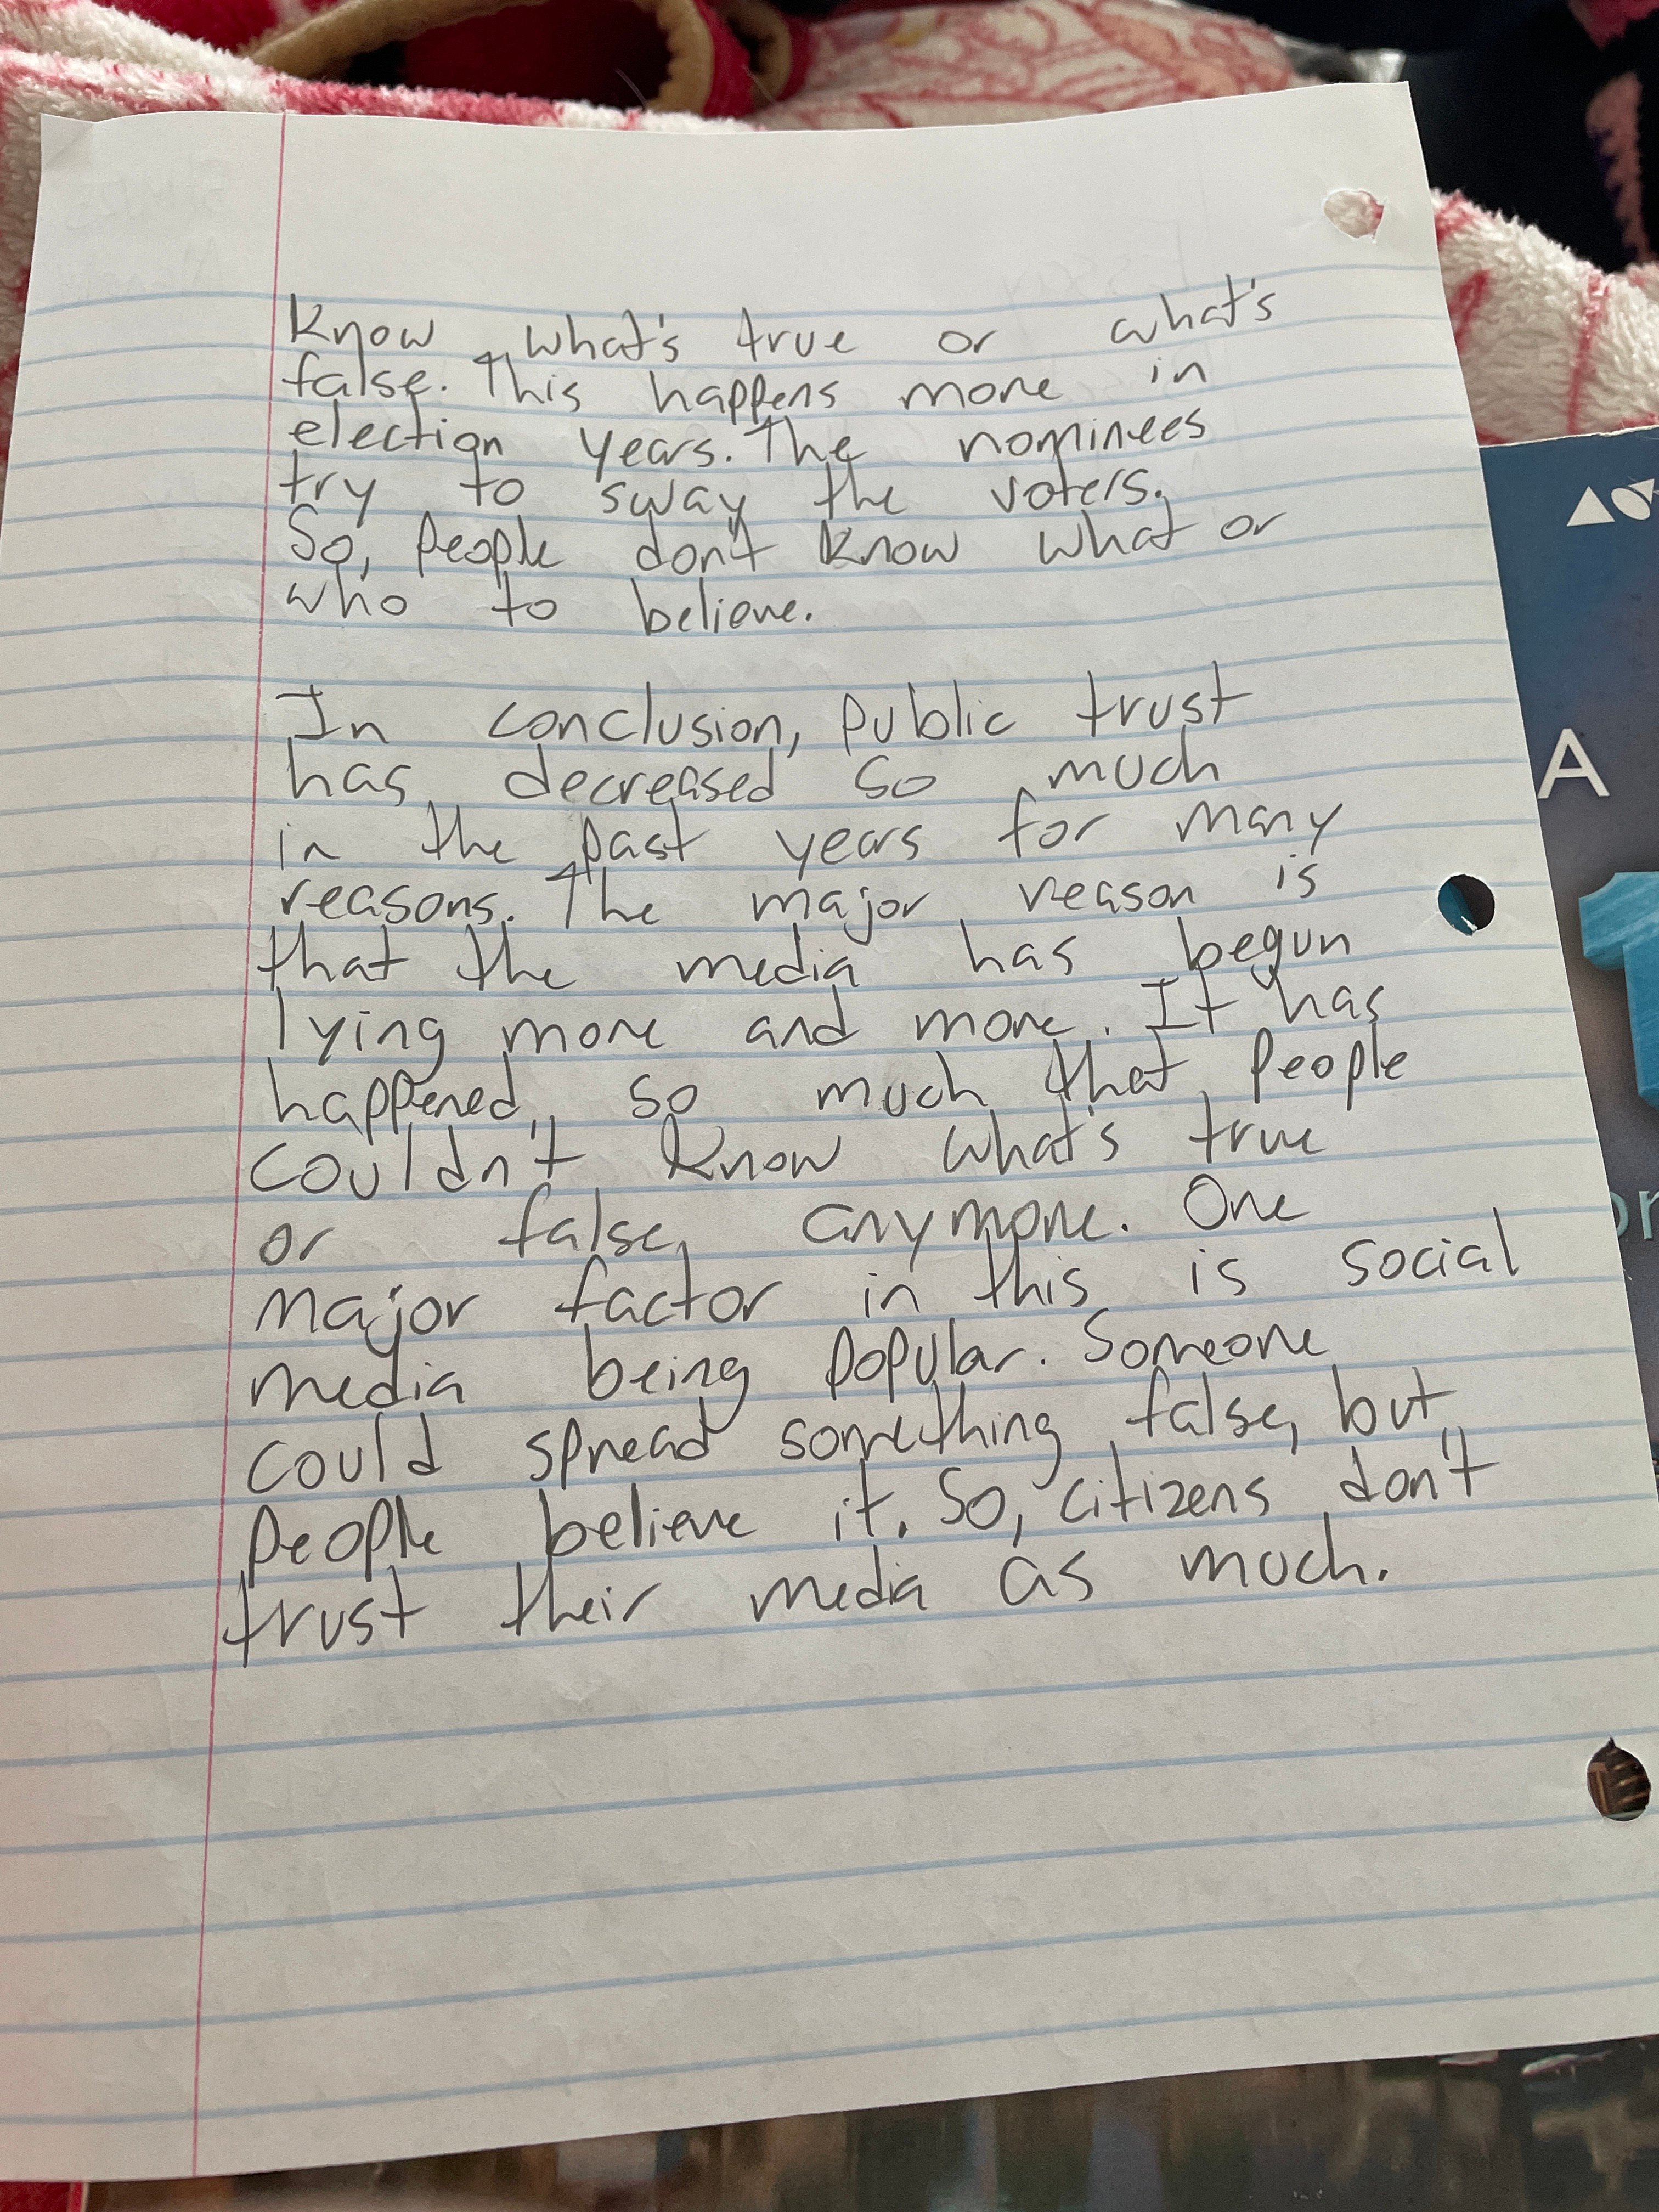 know what's true or what's
false. This happens more in
election years. The nominees
try to sway the voters.
So, people don't know what or
who to believe.
In conclusion, public trust
has decreased so much
in the past years for many
reasons. The major reason is
that the media has begun
lying more and more. It has
happened so much that people
couldn't know what's true
or false anymore. One
major factor in this is social
media being popular. Someone
could spread something false, but
people believe it. So, citizens don't
trust their media as much.
A